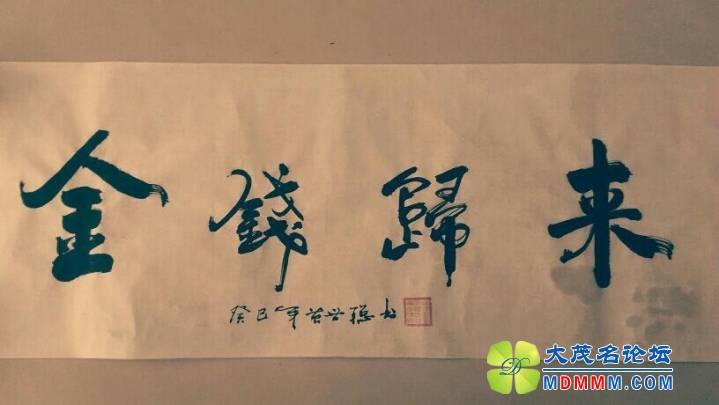 金錢歸来
癸巳年 聪书
大茂名论坛
MDMMM.COM